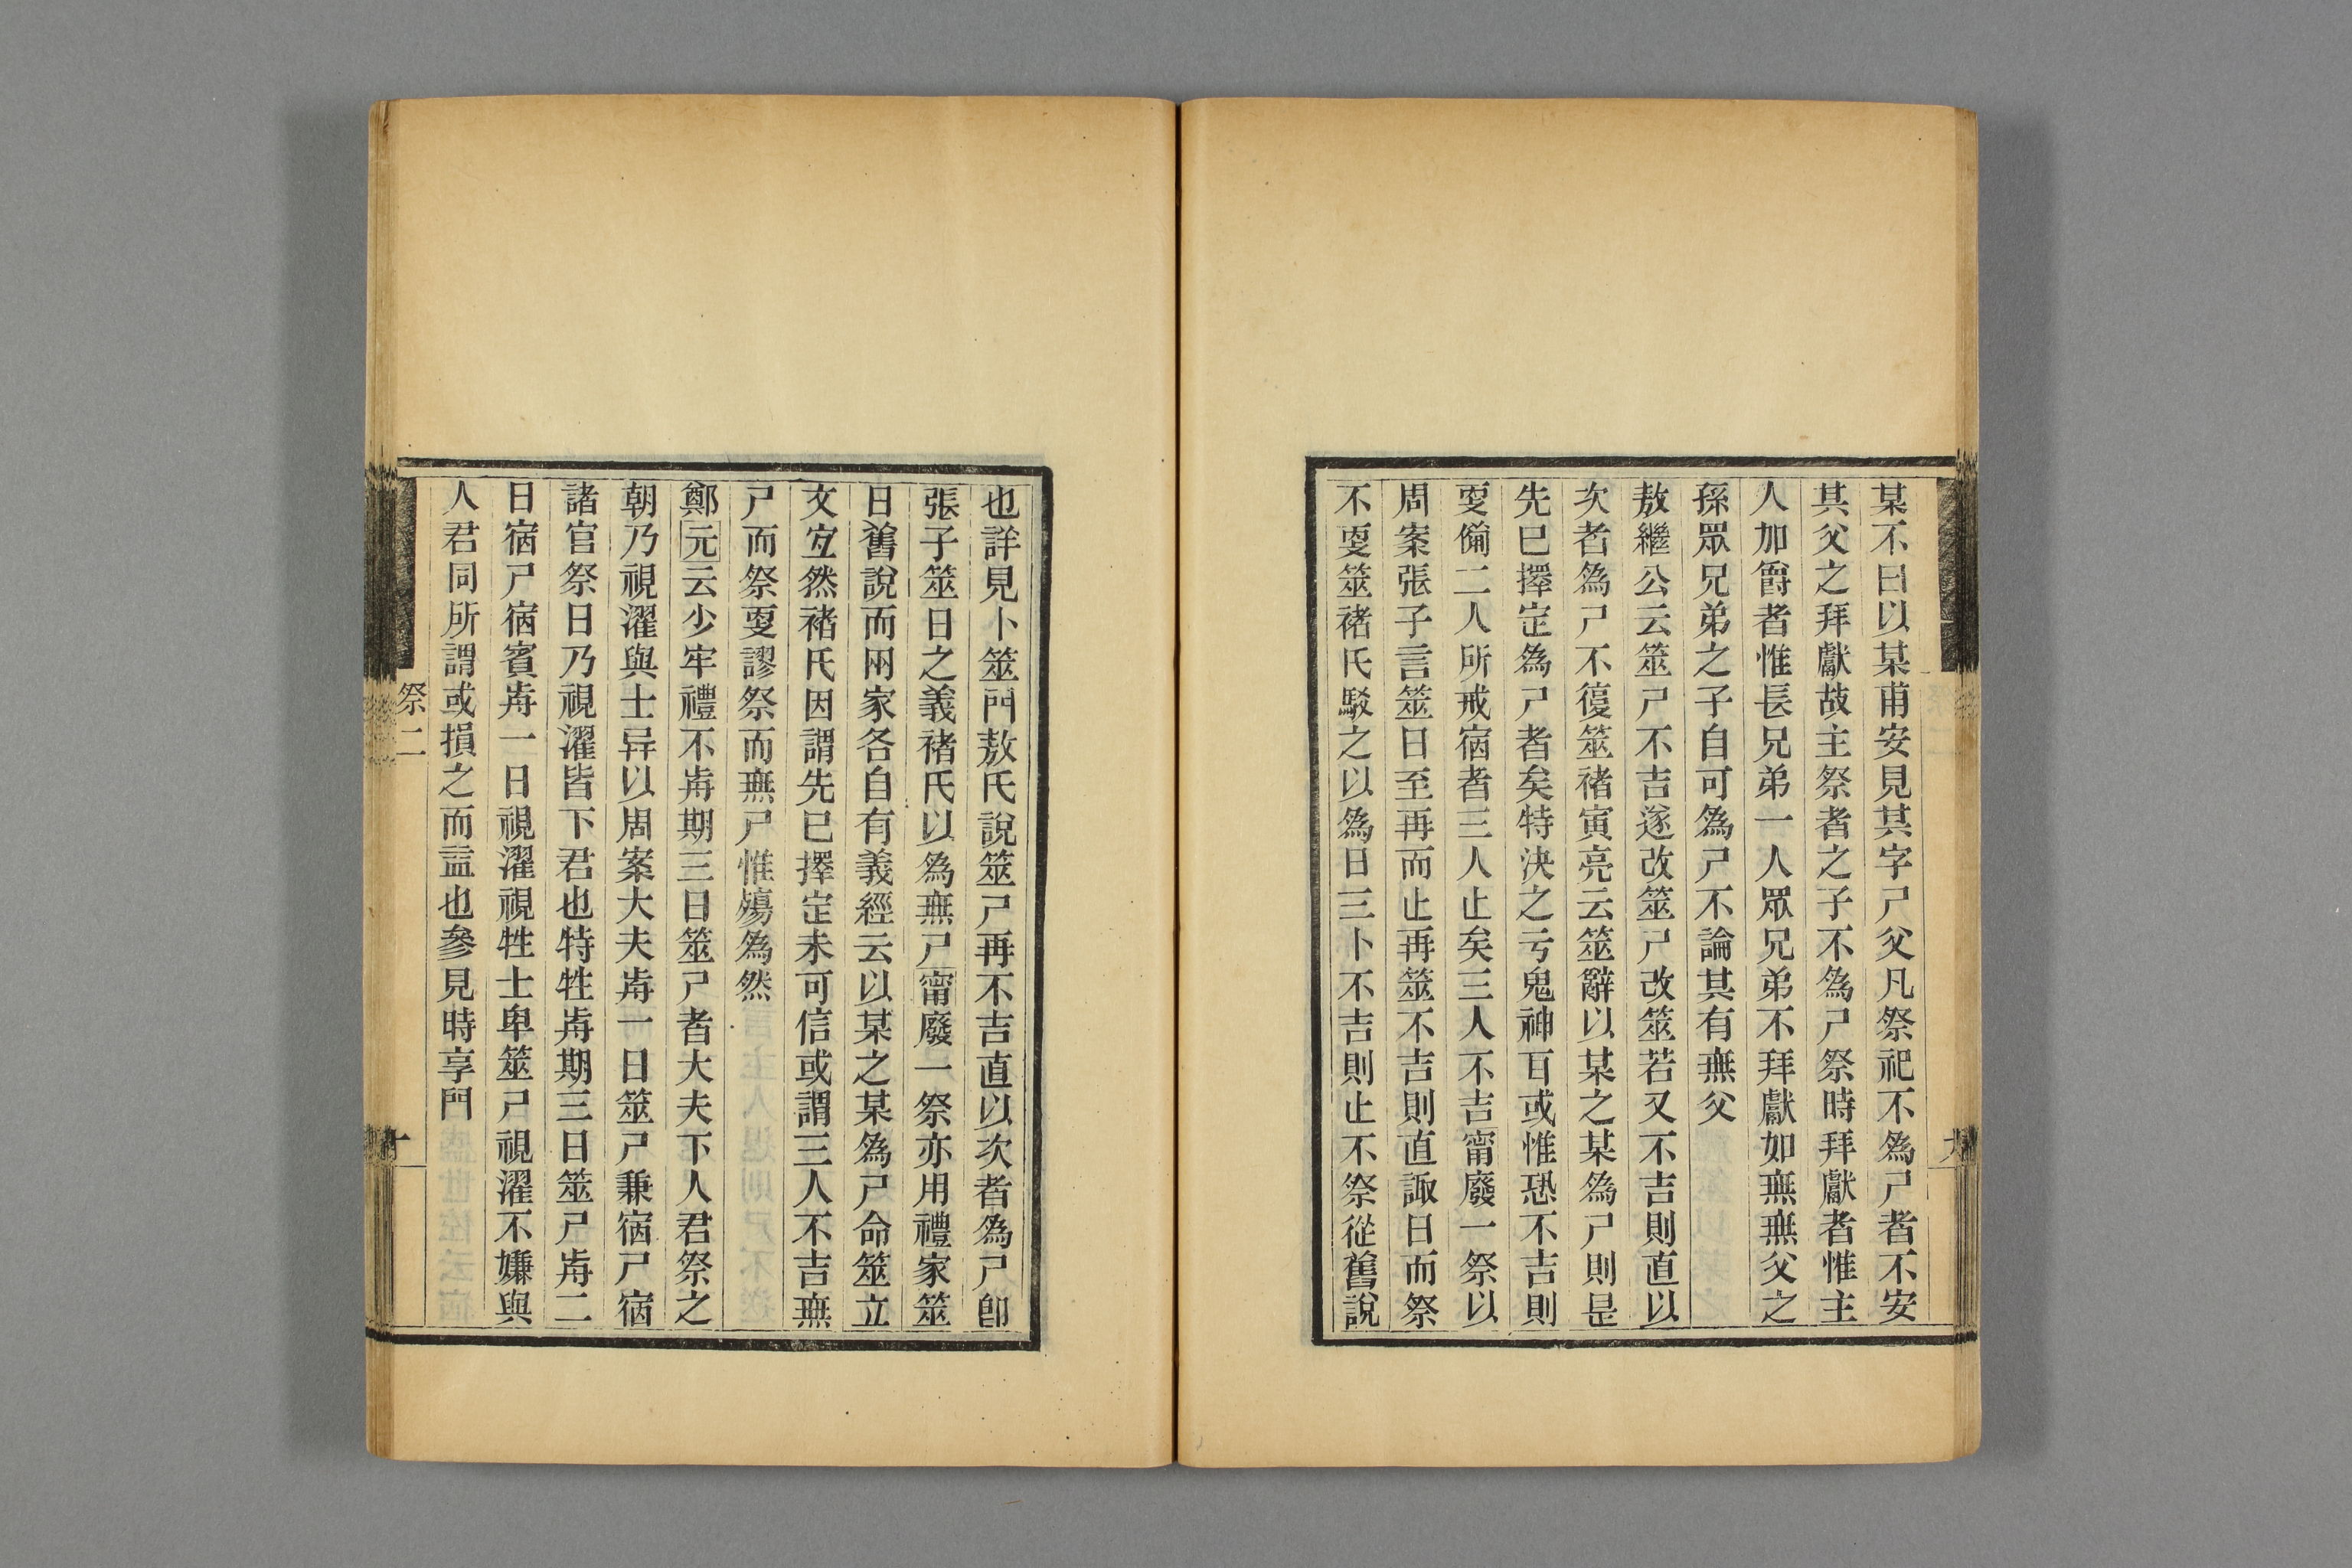 某不曰以某甫安見其字尸父凡祭祀不為尸者不安
其父之拜獻故主祭者之子不為尸祭時拜獻者惟主
人加爵者惟長兄弟一人眾兄弟不拜獻如無無父之
孫眾兄弟之子自可為尸不論其有無父
敖繼公云筮尸不吉遂改筮尸改筮若又不吉則直以
次者為尸不復筮褚寅亮云筮辭以某之某為尸則是
先已擇定為尸者矣特決之亏鬼神耳或惟恐不吉則
更僃二人所戒宿者三人止矣三人不吉甯廢一祭以
周案張子言筮日至再而止再筮不吉則直諏日而祭
不更筮褚氏駁之以為日三卜不吉則止不祭從舊說
也詳見卜筮門敖氏說筮尸再不吉直以次者為尸卽
張子筮日之義褚氏以為無尸甯廢一祭亦用禮家筮
日舊說而网家各自有義經云以某之某為尸命筮立
文宐然褚氏因謂先已擇定未可信或謂三人不吉無
尸而祭更謬祭而無尸惟殤為然
鄭元云少牢禮不歬期三日筮尸者大夫下人君祭之
朝乃視濯與士异以周案大夫歬一日筮尸兼宿尸宿
諸官祭日乃視濯皆下君也特牲歬期三日筮尸歬二
日宿尸宿賓歬一日視濯視牲士卑筮尸視濯不嫌與
人君同所謂或損之而益也參見時享門
祭二